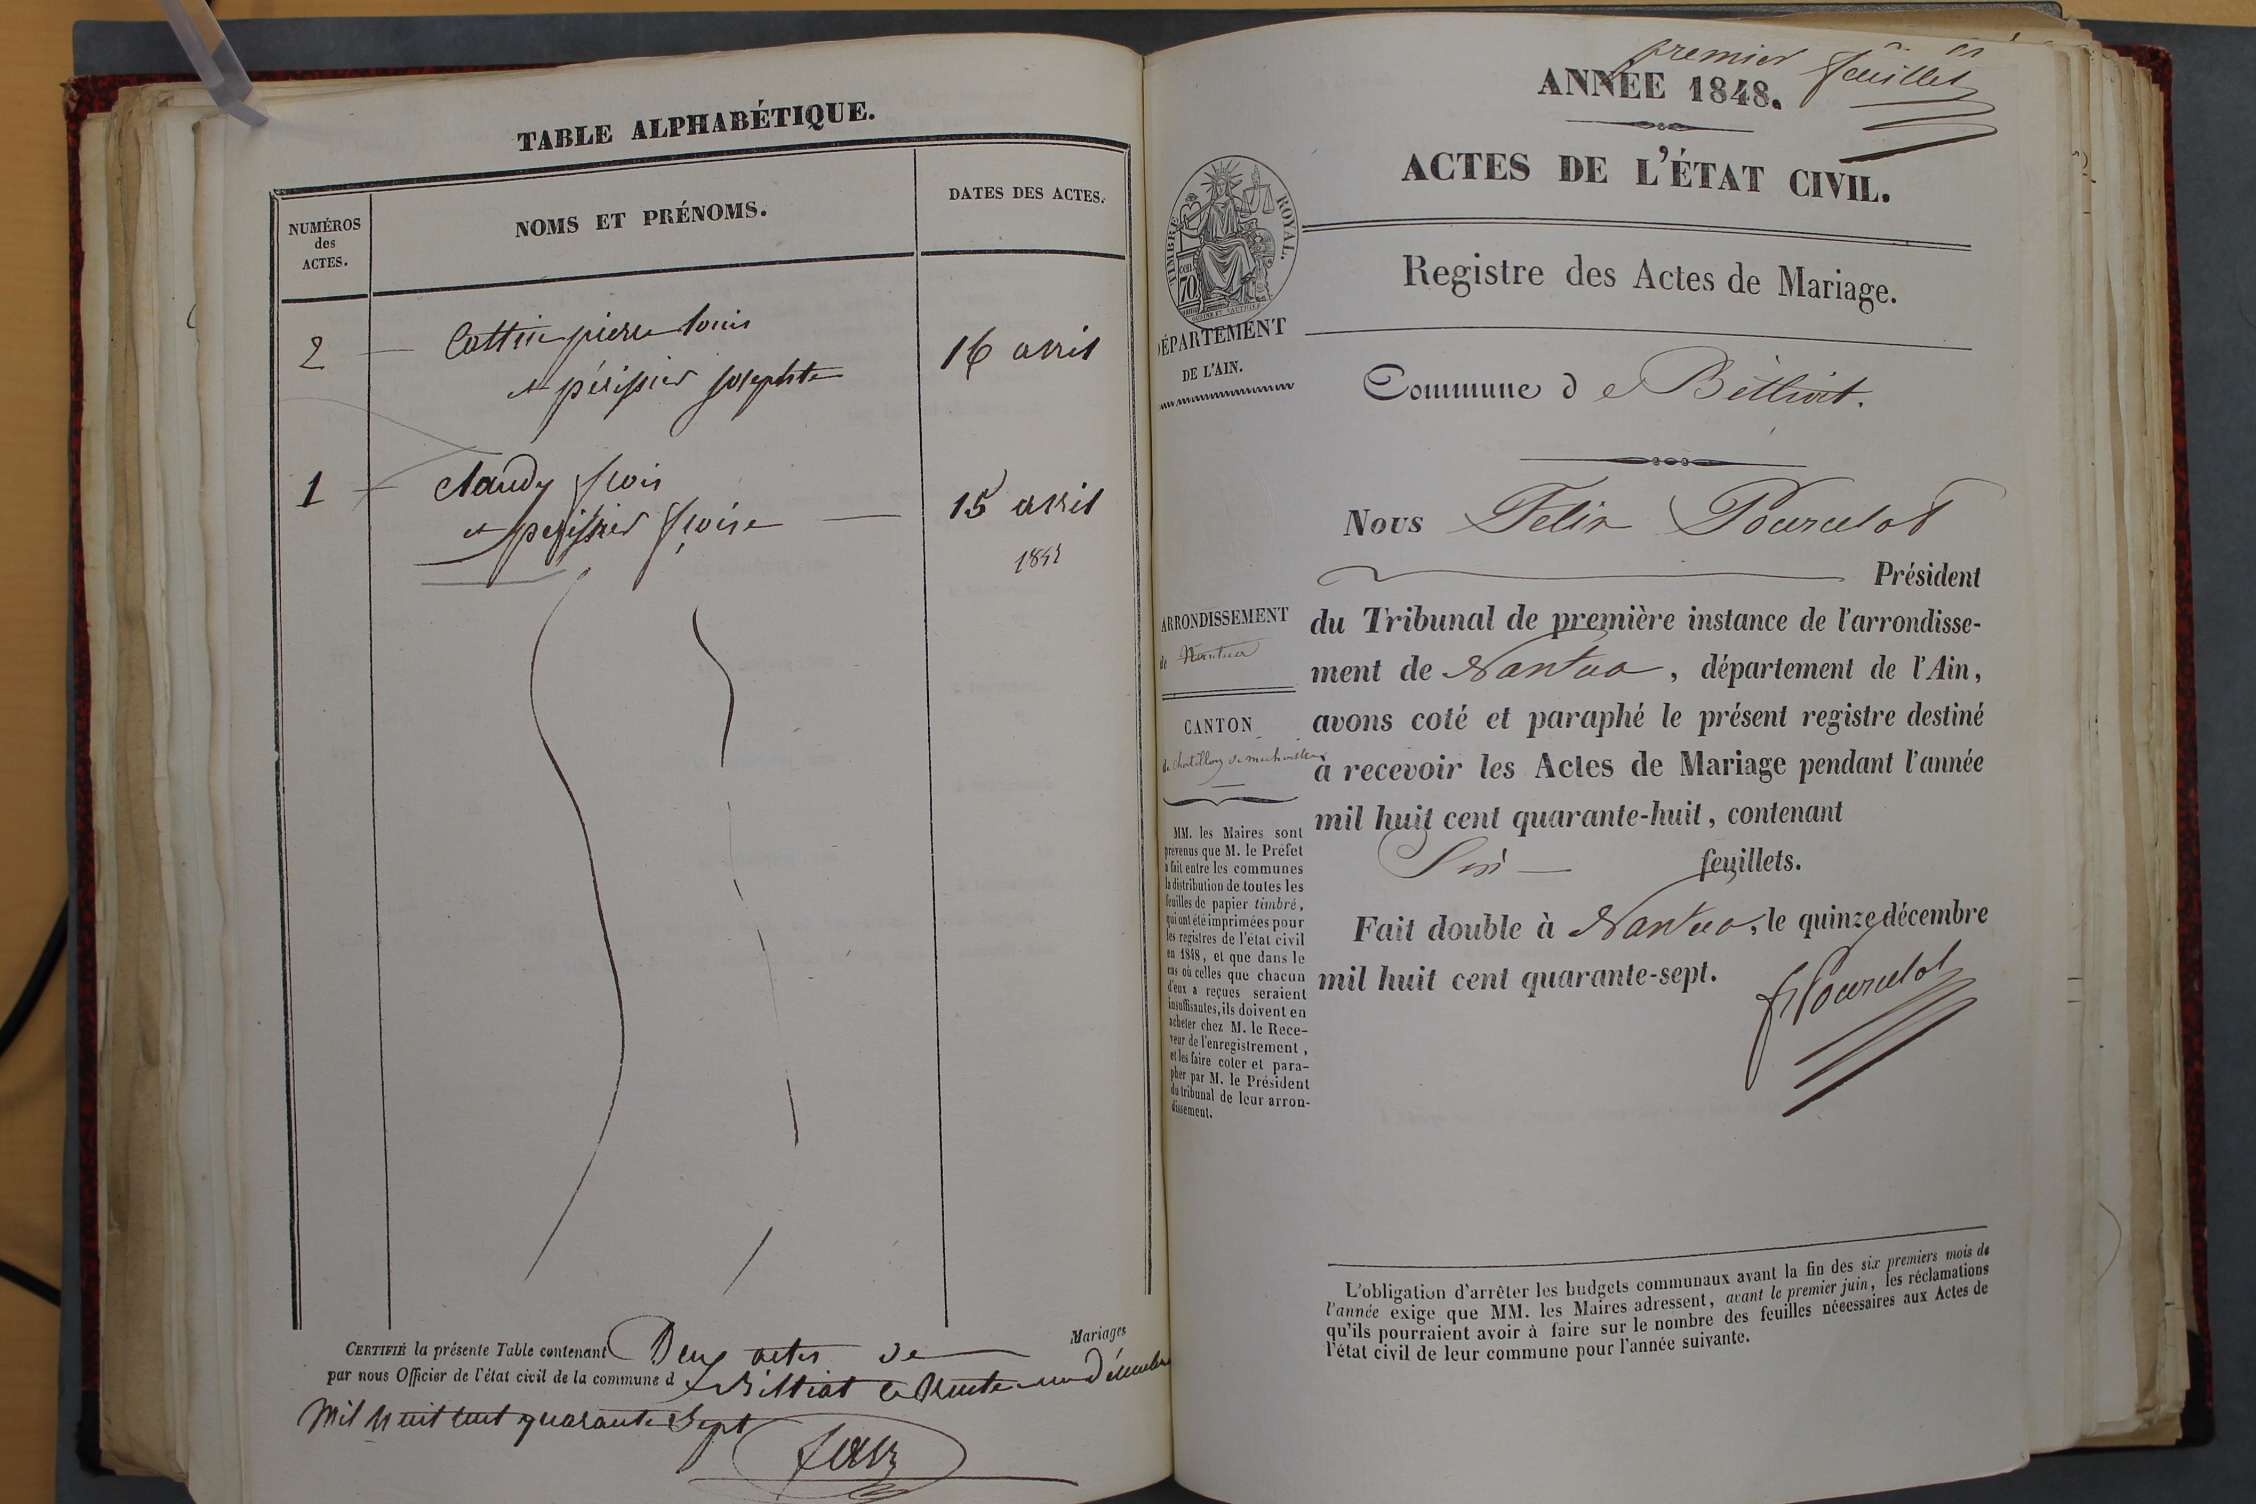 TABLE ALPHABÉTIQUE.
NUMÉROS
des
ACTES.
NOMS ET PRÉNOMS.
DATES DES ACTES.
2 Cottin pierre louis 16 avril
et périssier josephte
1 Claudy fcois 15 avril
et perissier fcoise
CERTIFIÉ la présente Table contenant Deux actes de Mariages
par nous Officier de l'état civil de la commune d e Billiat le trente un décembre
Mil huit cent quarante Sept
premier feuillet
ANNÉE 1848.
ACTES DE L'ÉTAT CIVIL.
TIMBRE ROYAL.
70
Registre des Actes de Mariage.
DÉPARTEMENT
DE L'AIN.
Commune d e Billiat.
Nous Felix Pourcelot
Président
ARRONDISSEMENT
de Nantua
CANTON
de chatillon de michaille
du Tribunal de première instance de l'arrondisse-
ment de Nantua, département de l'Ain,
avons coté et paraphé le présent registre destiné
à recevoir les Actes de Mariage pendant l'année
mil huit cent quarante-huit, contenant
Six feuillets.
Fait double à Nantua, le quinze décembre
mil huit cent quarante-sept.
F Pourcelot
MM. les Maires sont
prévenus que M. le Préfet
a fait entre les communes
la distribution de toutes les
feuilles de papier timbré,
qui ont été imprimées pour
les registres de l'état civil
en 1848, et que dans le
cas où celles que chacun
d'eux a reçues seraient
insuffisantes, ils doivent en
acheter chez M. le Rece-
veur de l'enregistrement,
et les faire coter et para-
pher par M. le Président
du tribunal de leur arron-
dissement.
L'obligation d'arrêter les budgets communaux avant la fin des six premiers mois de
l'année exige que MM. les Maires adressent, avant le premier juin, les réclamations
qu'ils pourraient avoir à faire sur le nombre des feuilles nécessaires aux Actes de
l'état civil de leur commune pour l'année suivante.